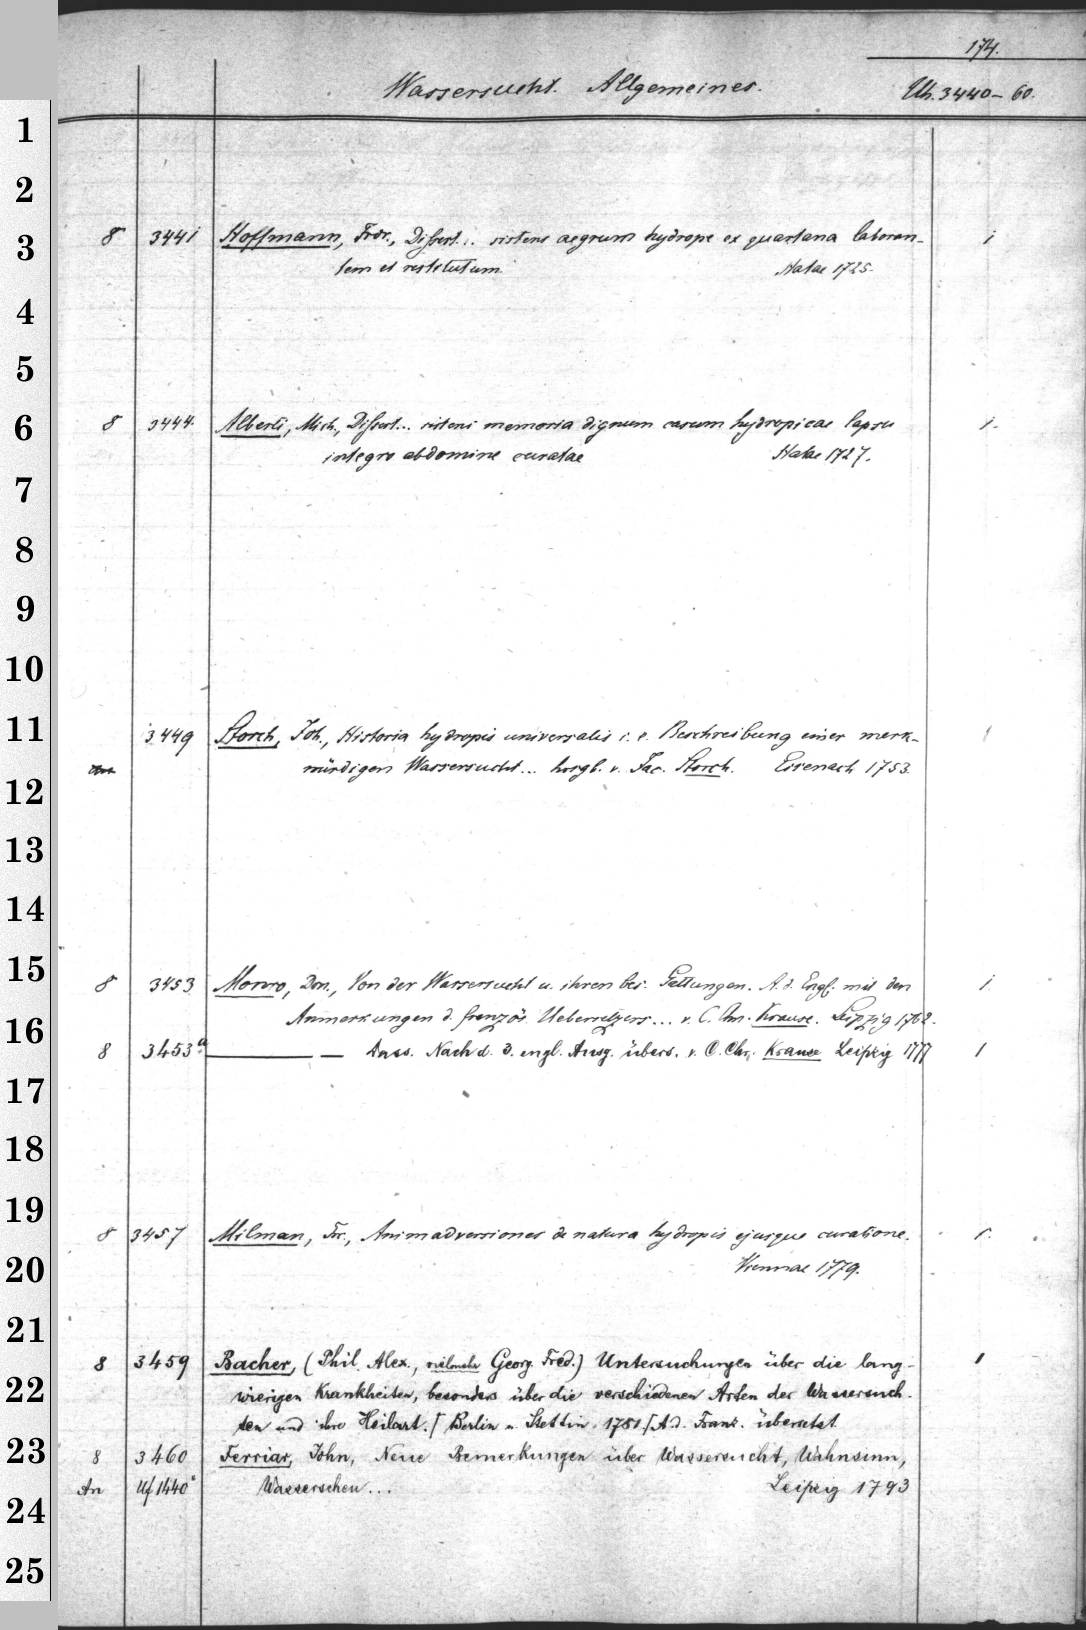 174.
Wassersucht. Allgemeines. Uh. 3440–60.
8 3441 Hoffmann, Frdr., Dissert... sistens aegrum hydrope ex quartana laboran- 1
tem et restitutum. Halae 1725.
8 3444. Alberti, Mich., Dissert... sistens memoria dignum casum hydropicae lapsu 1.
integro abdomine curatae Halae 1727.
3449 Storch, Joh., Historia hydropis universalis i. e. Beschreibung einer merk- 1
würdigen Wassersucht... hrsgb. v. Jac. Storch. Eisenach 1753.
8 3453 Monro, Don., Von der Wassersucht u. ihren bes. Gattungen. A. d. Engl. mit den 1
Anmerkungen d. französ. Uebersetzers... v. C. Chr. Krause. Leipzig 1762.
8 3453a ——— — Dass. Nach d. 3. engl. Ausg. übers. v. C. Chr. Krause Leipzig 1777 1
8 3457 Milman, Fr., Animadversiones de natura hydropis ejusque curatione. 1.
Viennae 1779.
8 3459 Bacher, (Phil. Alex., vielmehr Georg Fred.) Untersuchungen über die lang- 1
wierigen Krankheiten, besonders über die verschiedenen Arten der Wassersuch-
ten und ihre Heilart. [Berlin u. Stettin 1781.] A. d. Franz. übersetzt
8 3460 Ferriar, John, Neue Bemerkungen über Wassersucht, Wahnsinn,
An Uf 1440 Wasserscheu... Leipzig 1793
1
2
3
4
5
6
7
8
9
10
11
12
13
14
15
16
17
18
19
20
21
22
23
24
25